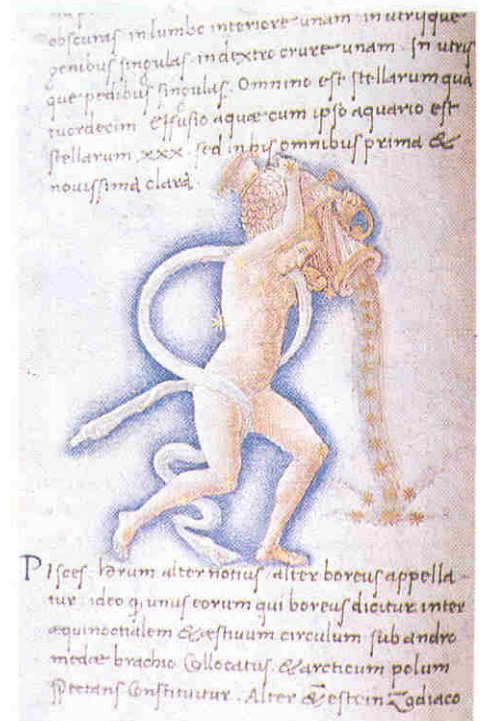 obscuras in lumbo interiore unam. in utrisque
genibus singulas. in dextro crure unam. In utris
que pedibus singulas. Omnino est stellarum qua
tuordecim effusio aquæ cum ipso aquario est
stellarum xxx. sed in his omnibus prima &
novissima clara.
Pisces. horum alter notius alter boreus appella-
tur ideo q, unus eorum qui boreus dicitur inter
æquinoctialem & æstivum circulum sub andro
medæ brachio collocatus. & arcticum polum
spectans constituitur. Alter & est in Zodiaco